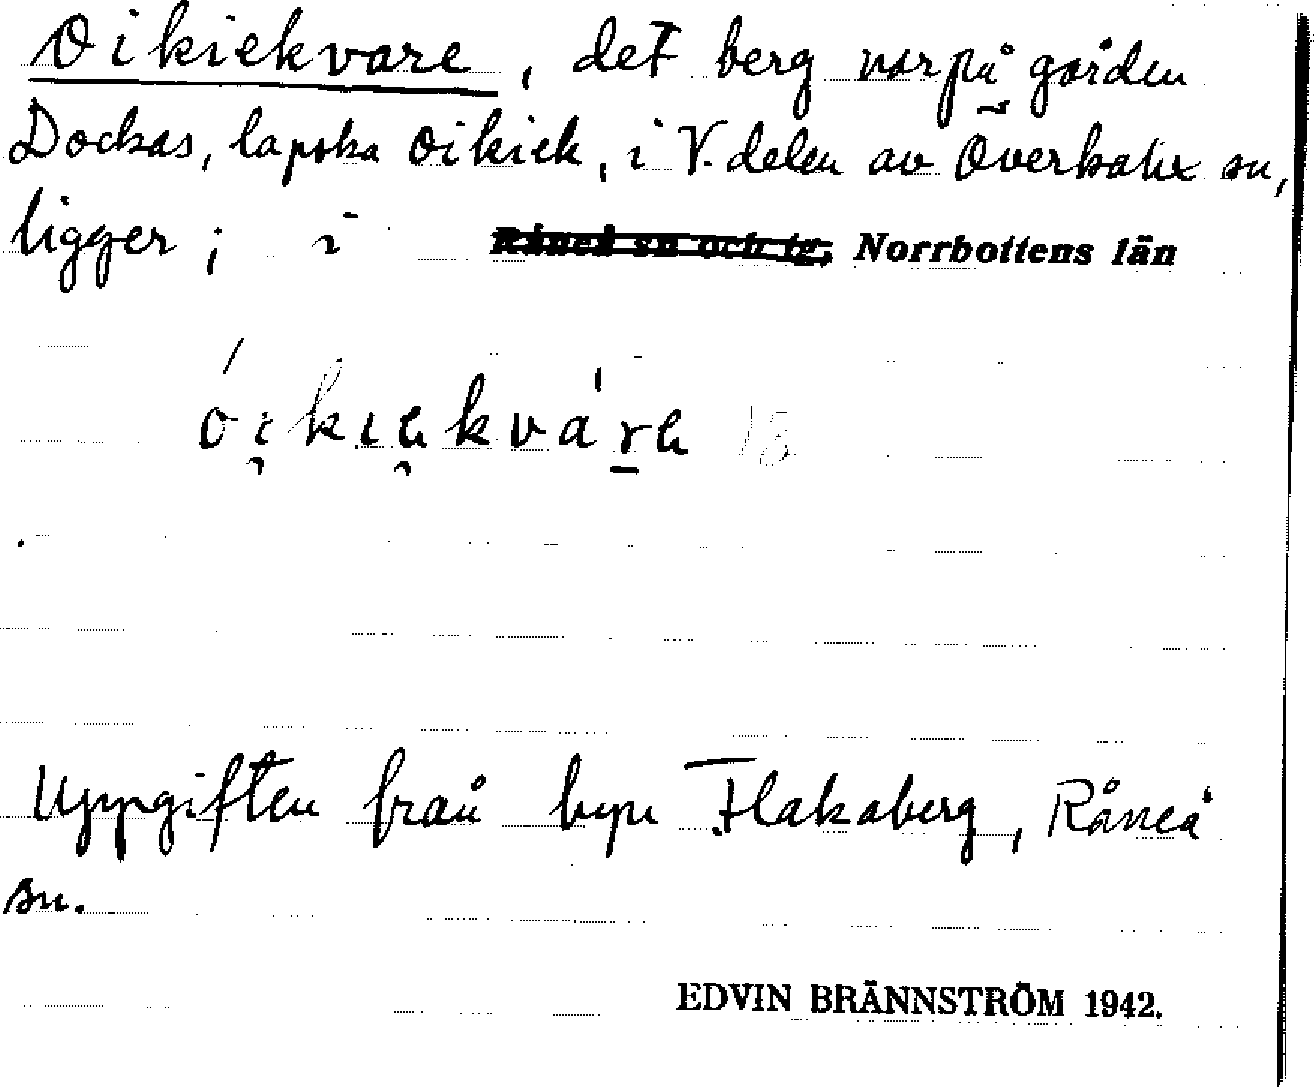 Oikiekvare, det berg varpå gården
Dockas, lapska Oikiek, i V. delen av Överkalix sn,
ligger; i Råneå sn och tg, Norrbottens län
óikiekváre
Uppgiften från byn Flakaberg, Råneå
sn.
EDVIN BRÄNNSTRÖM 1942.